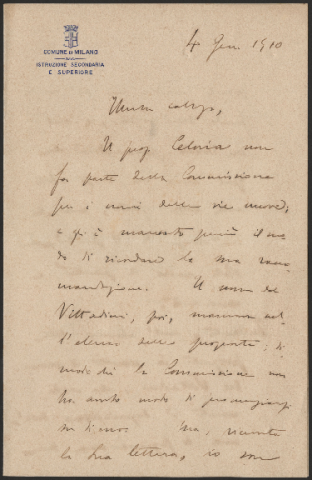 COMUNE DI MILANO
ISTRUZIONE SECONDARIA
E SUPERIORE
4 Gen 1910
Il prof. Celoria non
fa parte della Commissione
per i nomi delle vie nuove;
e gli è mancato perciò il mo-
do di ricordare la sua racco-
mandazione. Il nome del
Vittadini, poi, mancava nel-
l'elenco delle proposte; di
modo che la Commissione non
ha avuto modo di pronunziarsi
su di esso. Ma, ricevuta
la sua lettera, io sono